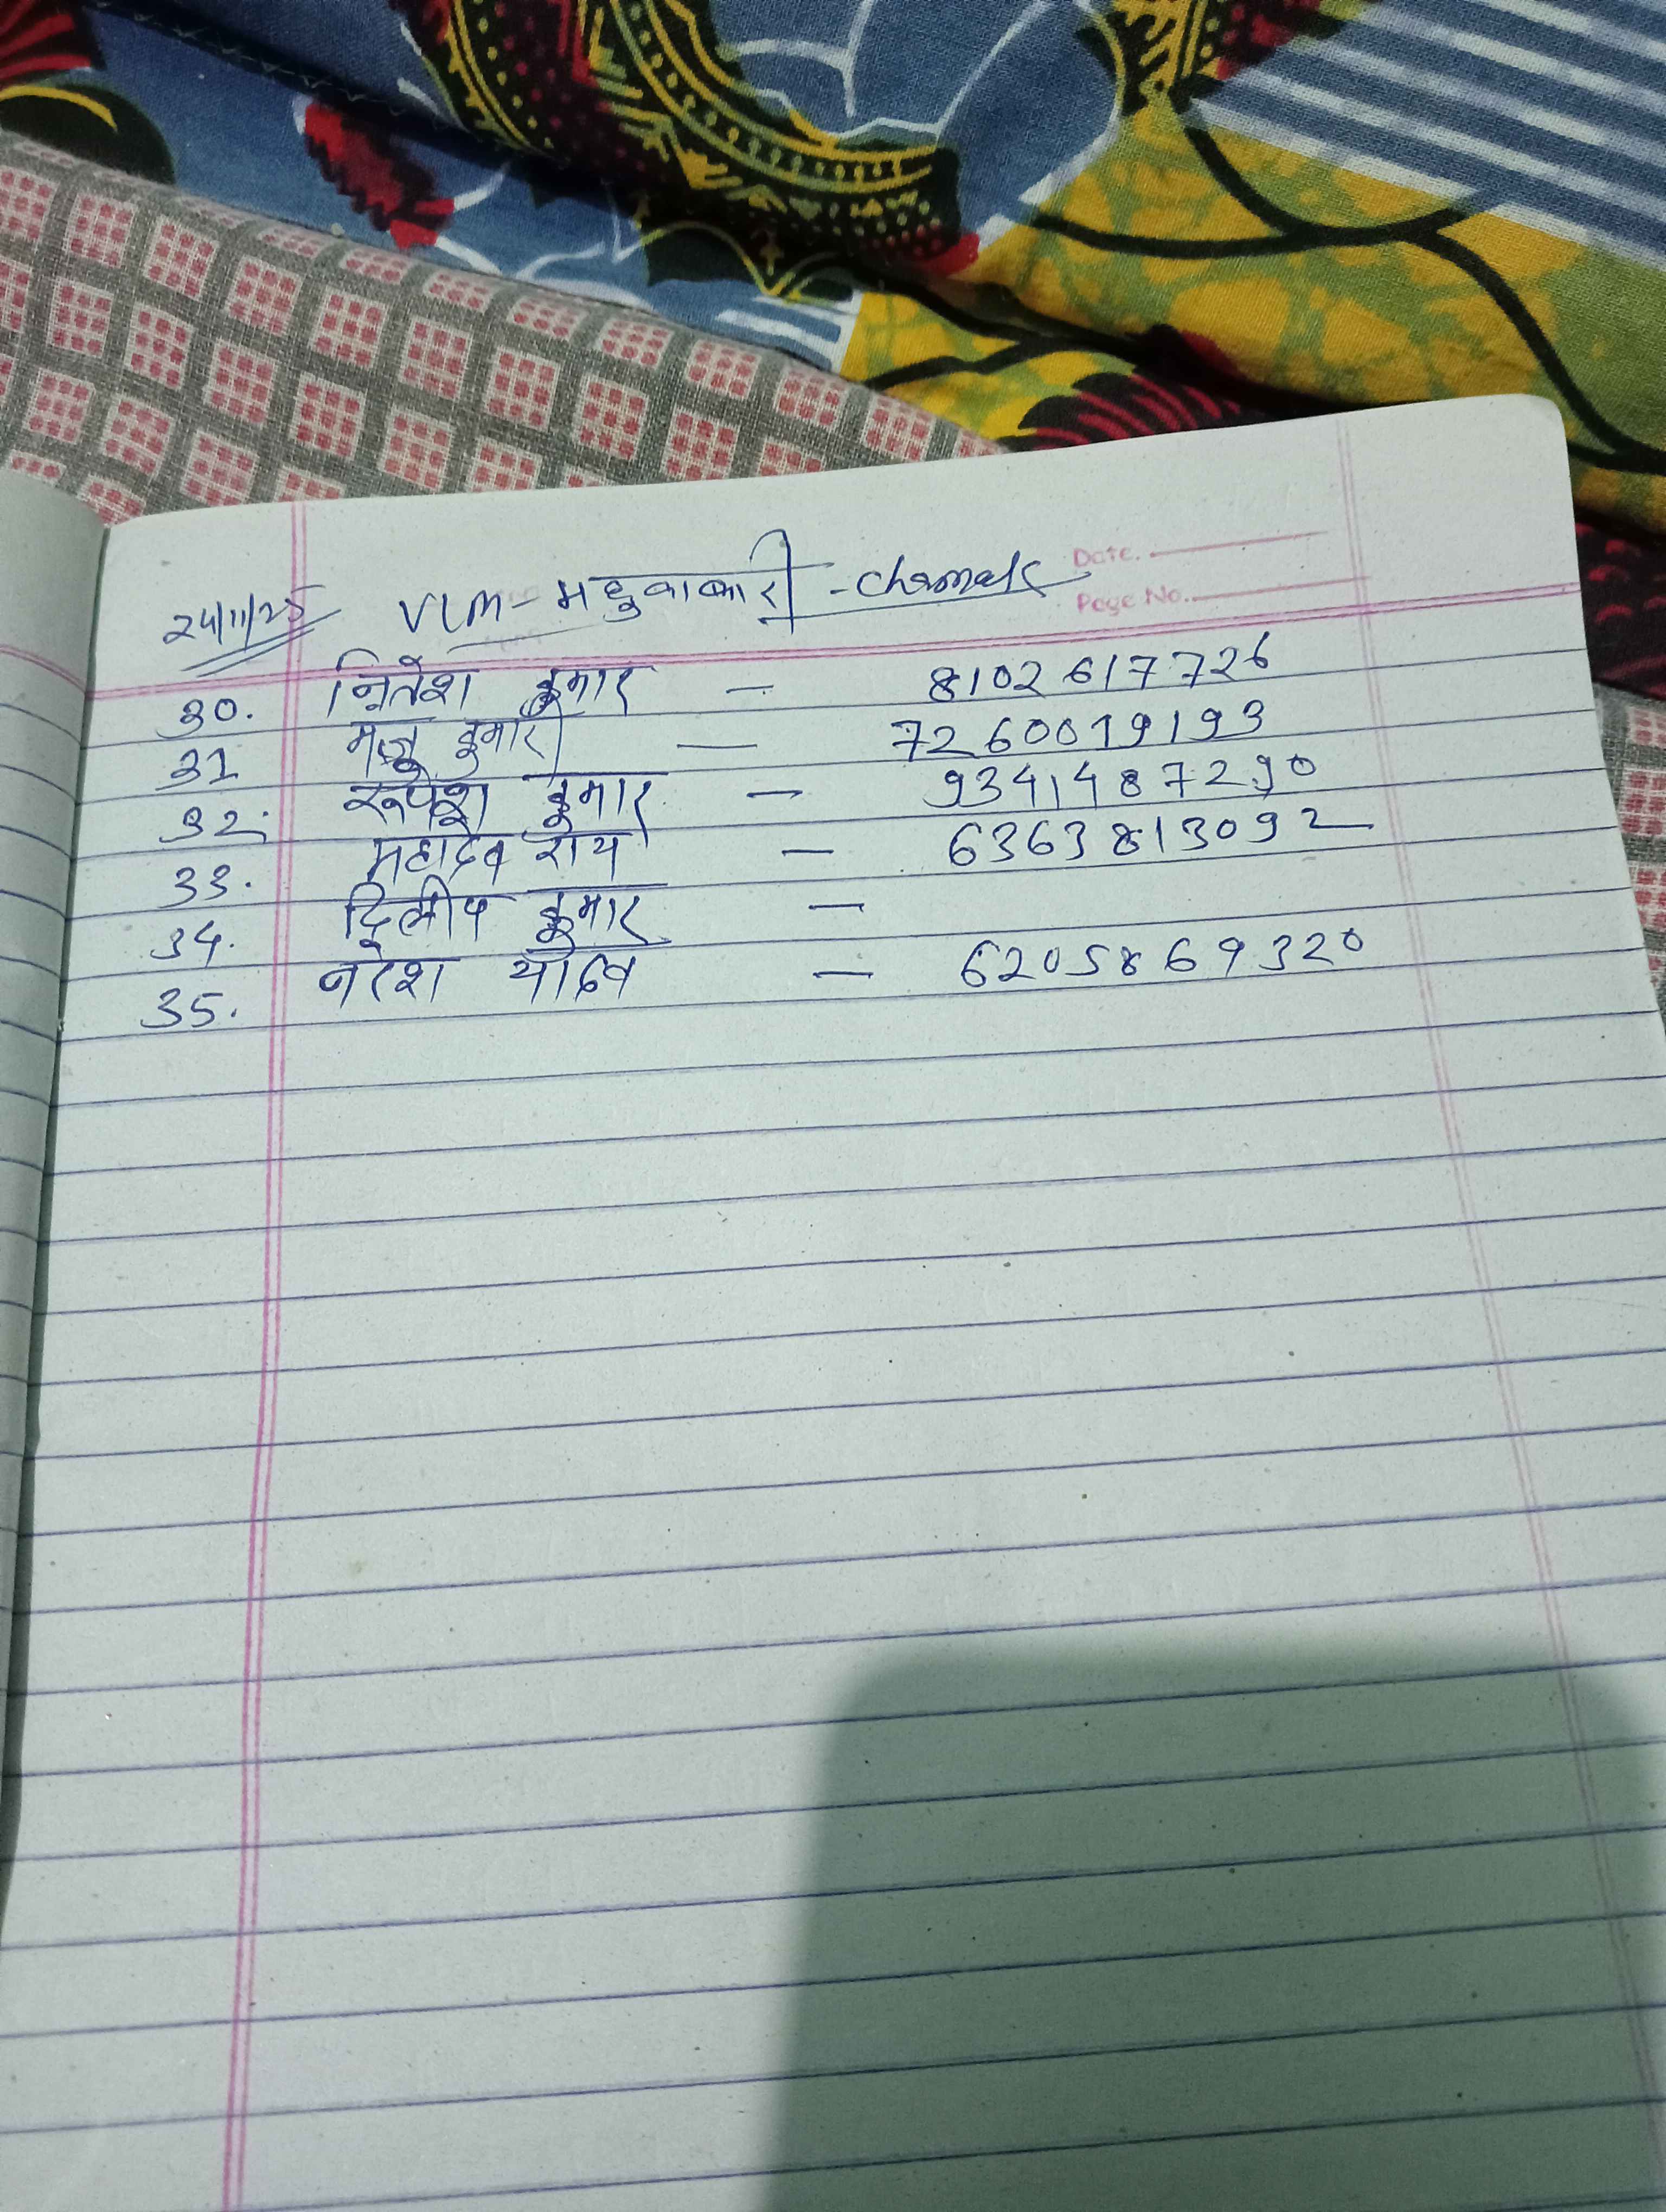 24/11/25 VLM - मधुवाबारी -
Date.
Page No.
30. नितेश कुमार — 8102617726
31 मंजू कुमारी — 7260019193
32. रूपेश कुमार — 9341487290
33. महादेव राय — 6363813092
34. दिलीप कुमार —
35. नरेश यादव — 6205869320